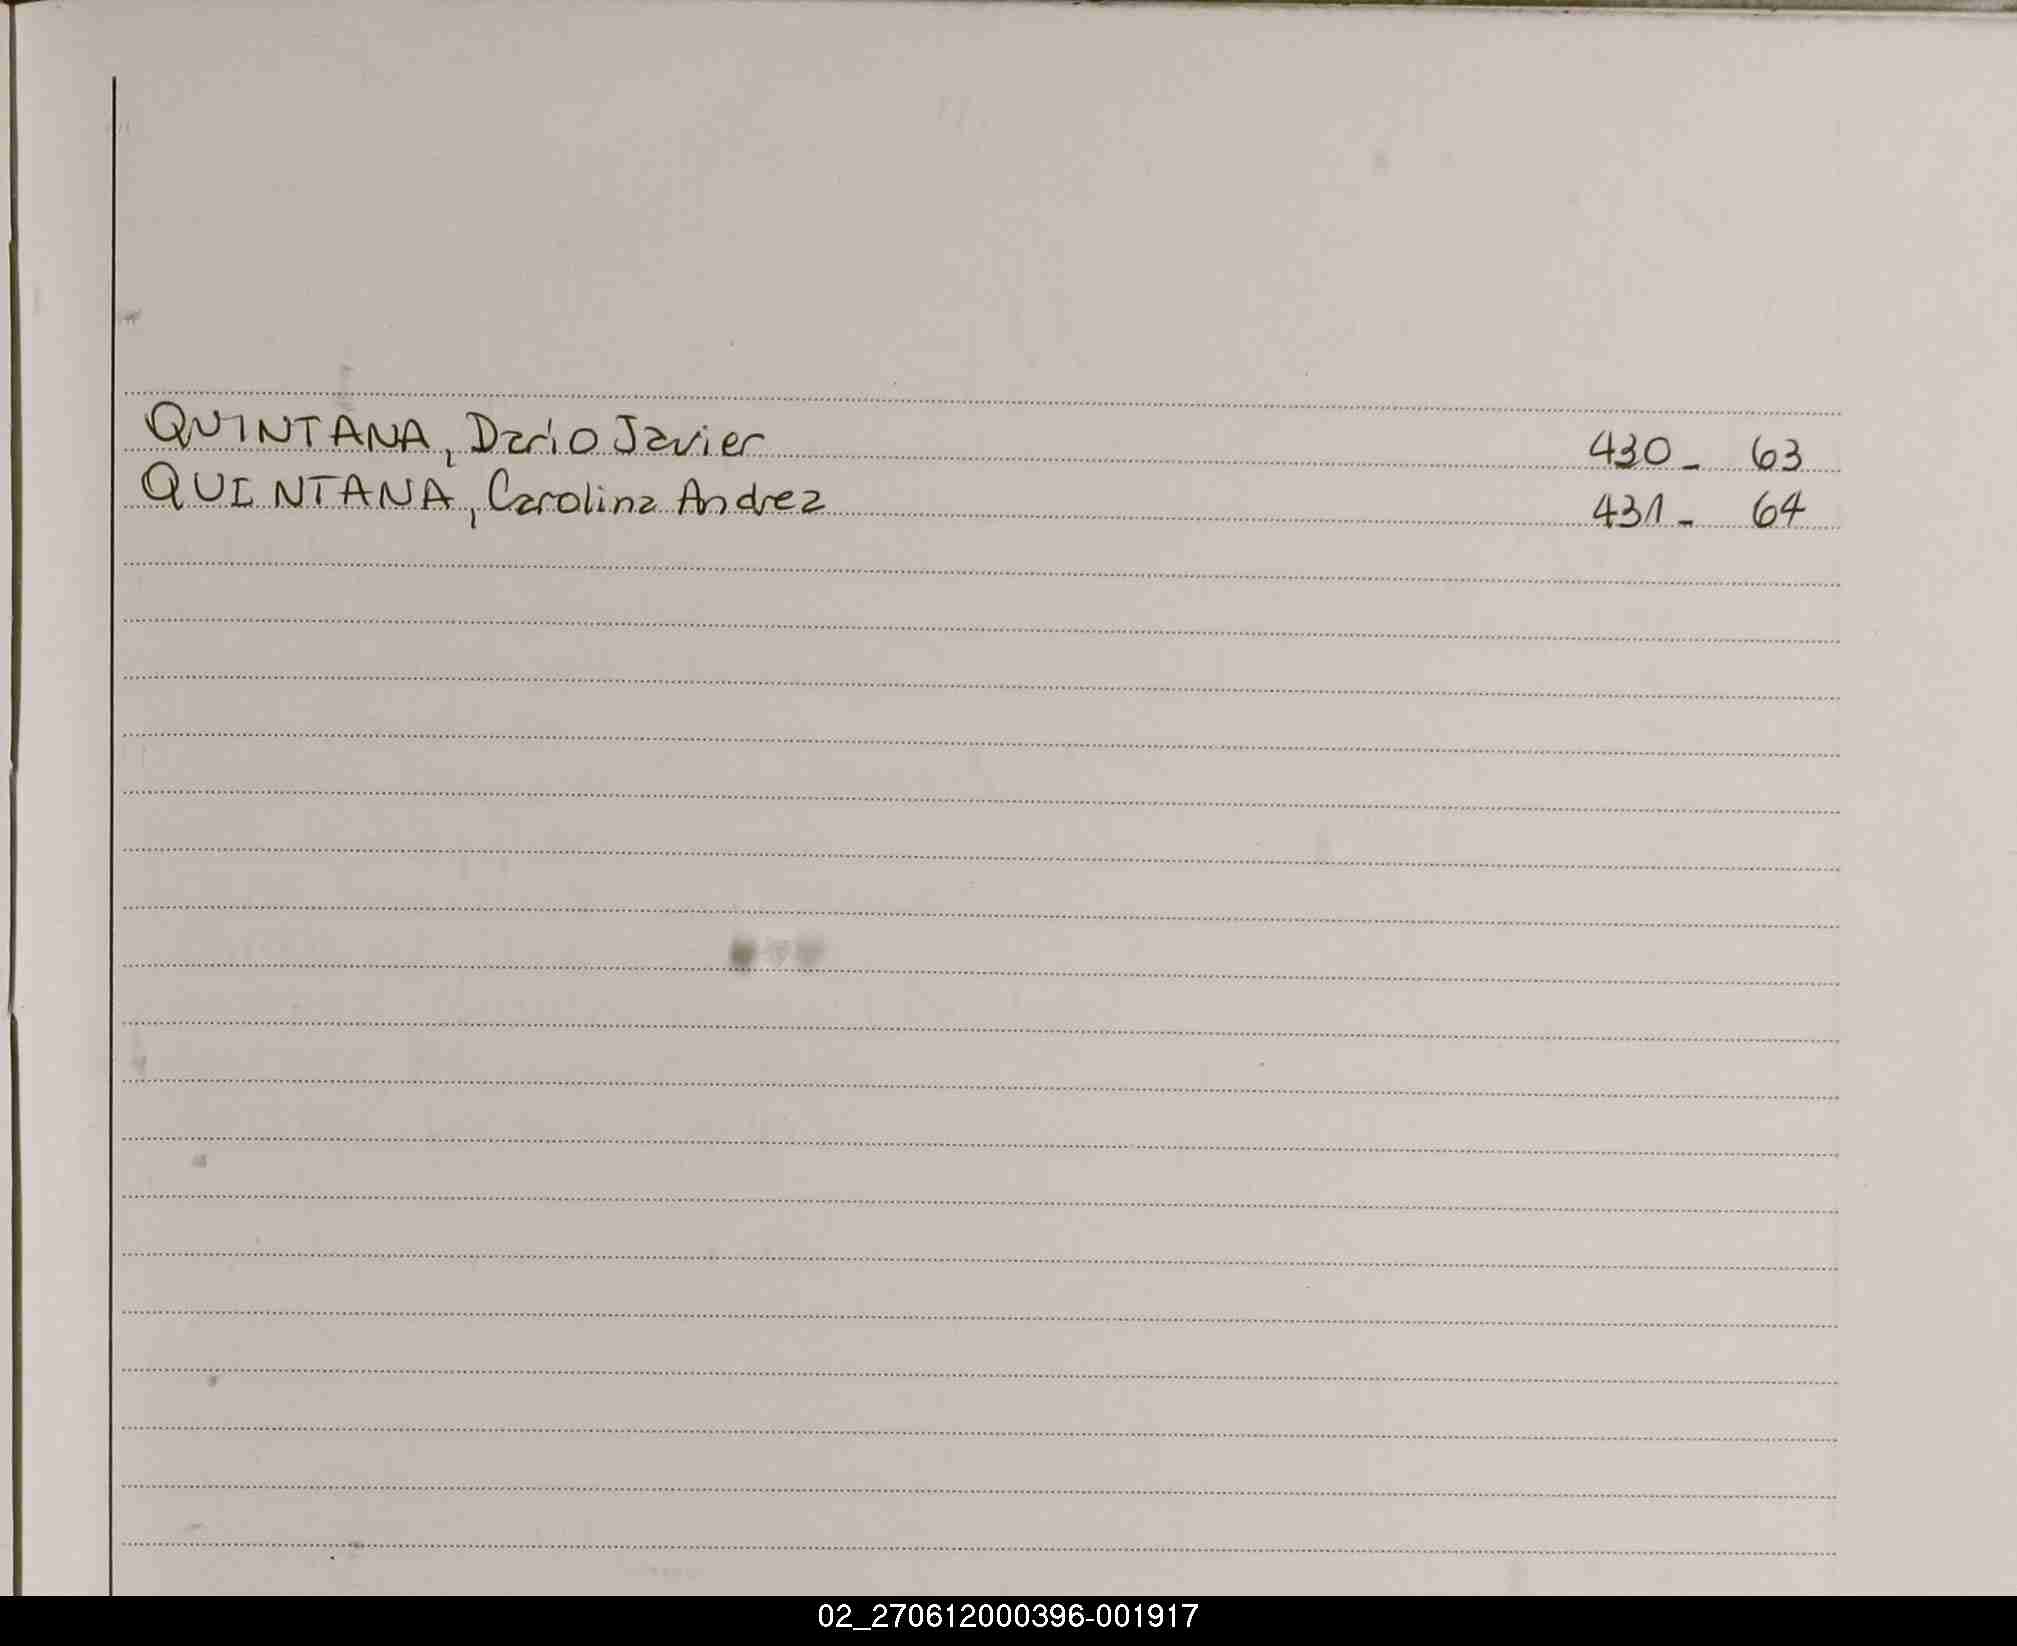 QUINTANA, Darío Javier 430 - 63
QUINTANA, Carolina Andrea 431 - 64
02_270612000396-001917